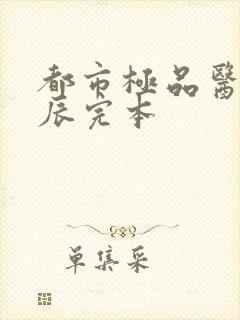 都市極品醫
辰完本
單集采